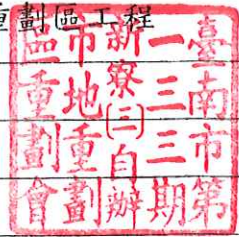 重劃區工程
臺南市第
一三三期
新寮(三)自辦
市地重劃
區重劃會